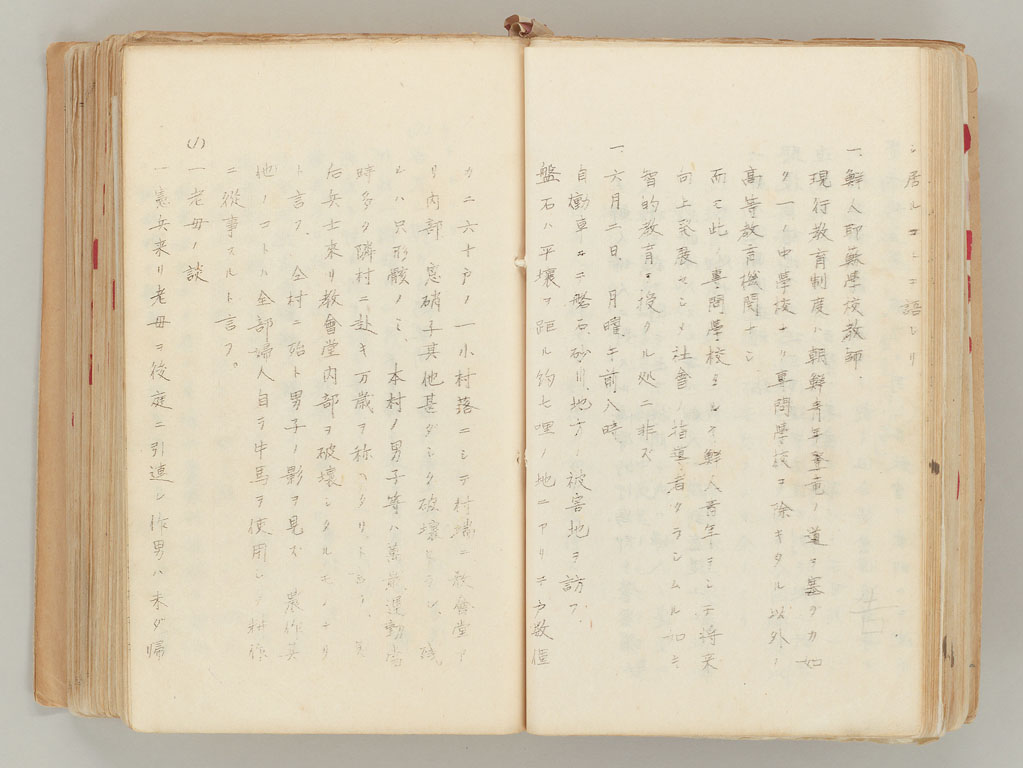 シ居ルコトヲ語レリ
一、鮮人耶蘇學校教師、
現行教育制度ハ朝鮮青年登竜ノ道ヲ塞グカ如
ク一ノ中學校ナリ專門學校ヲ除キタル以外ノ
高等教育機関ナシ
而モ此ノ專門學校タルヤ鮮人青年ヲシテ将来
向上発展セシメ社會ノ指導者タラシムル如キ
智的教育ヲ授クル処ニ非ズ
一、六月二日、月曜、午前八時
自働車ニテ盤石、砂川地方ノ被害地ヲ訪フ、
盤石ハ平壌ヲ距ル約七哩ノ地ニアリテ戸数僅
カニ六十戸ノ一小村落ニシテ村端ニ教會堂ア
リ内部、窓硝子其他甚ダシク破壊セラレ、残
ルハ只形骸ノミ、本村ノ男子等ハ萬歳運動當
時多ク隣村ニ赴キ万歳ヲ称ヘタリト云フ、其
后兵士来リ教會堂内部ヲ破壊シタルモノナリ
ト言フ、全村ニ殆ト男子ノ影ヲ見ズ、農作其
他ノコトハ全部婦人自ラ牛馬ヲ使用シテ耕作
ニ從事スルト言フ。
(1) 一老母ノ談
一憲兵来リ老母ヲ後庭ニ引連レ作男ハ未ダ帰